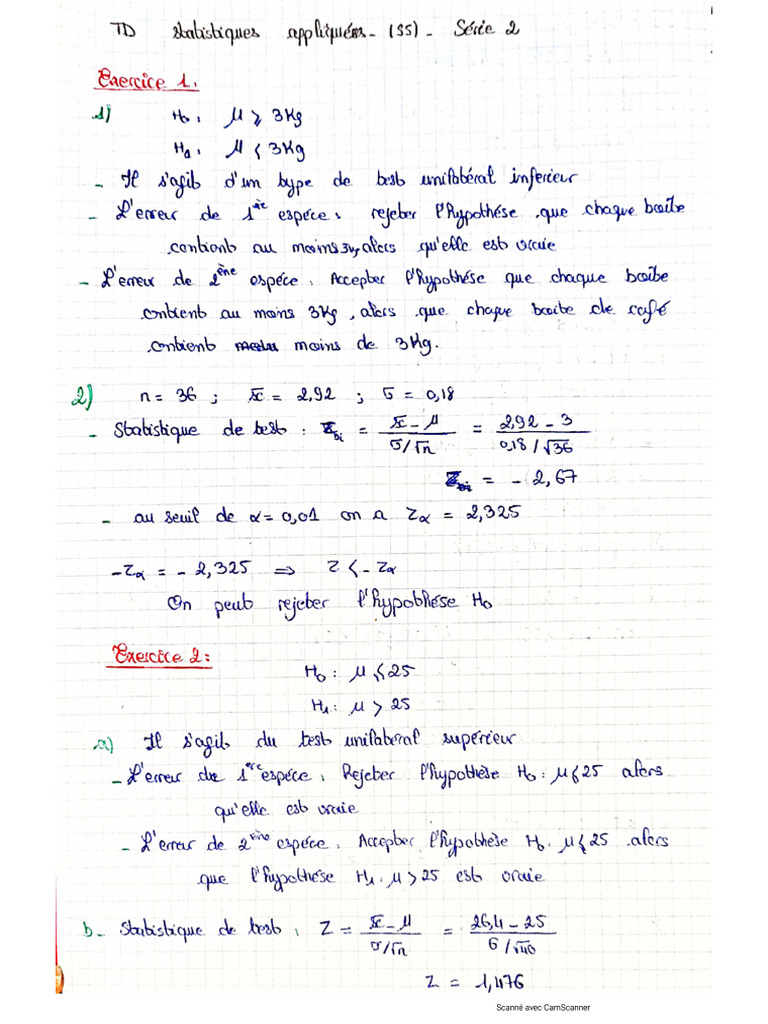 TD Statistiques appliquées - (S5) - Série 2
Exercice 1.
1) H₀: μ ≥ 3Kg
H₁: μ < 3Kg
- Il s'agit d'un type de test unilatéral inferieur
- L'erreur de 1ère espéce: rejeter l'hypothése que chaque boîte
contient au moins 3kg, alors qu'elle est vraie
- L'erreur de 2ème espéce: Accepter l'hypothése que chaque boîte
contient au moins 3Kg, alors que chaque boite de café
contient moins de 3Kg.
2) n = 36 ; x̄ = 2,92 ; σ = 0,18
- Statistique de test: Z = (x̄ - μ) / (σ/√n) = (2,92 - 3) / (0,18/√36)
Z = - 2,67
- au seuil de α = 0,01 on a Zα = 2,325
-Zα = - 2,325 ⇒ Z < - Zα
On peut rejeter l'hypothése H₀
Exercice 2:
H₀: μ ≤ 25
H₁: μ > 25
a) Il s'agit du test unilatéral supérieur
- L'erreur de 1ère espéce: Rejeter l'hypothèse H₀: μ ≤ 25 alors
qu'elle est vraie
- L'erreur de 2ème espéce: Accepter l'hypothèse H₀: μ ≤ 25 alors
que l'hypothése H₁: μ > 25 est vraie
b- Statistique de test: Z = (x̄ - μ) / (σ/√n) = (26,4 - 25) / (6/√40)
Z = 1,476
Scanné avec CamScanner